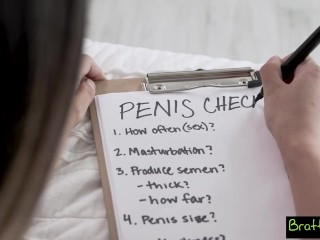 PENIS CHECK
1. How often (sex)?
2. Masturbation?
3. Produce semen?
- thick?
- how far?
4. Penis size?